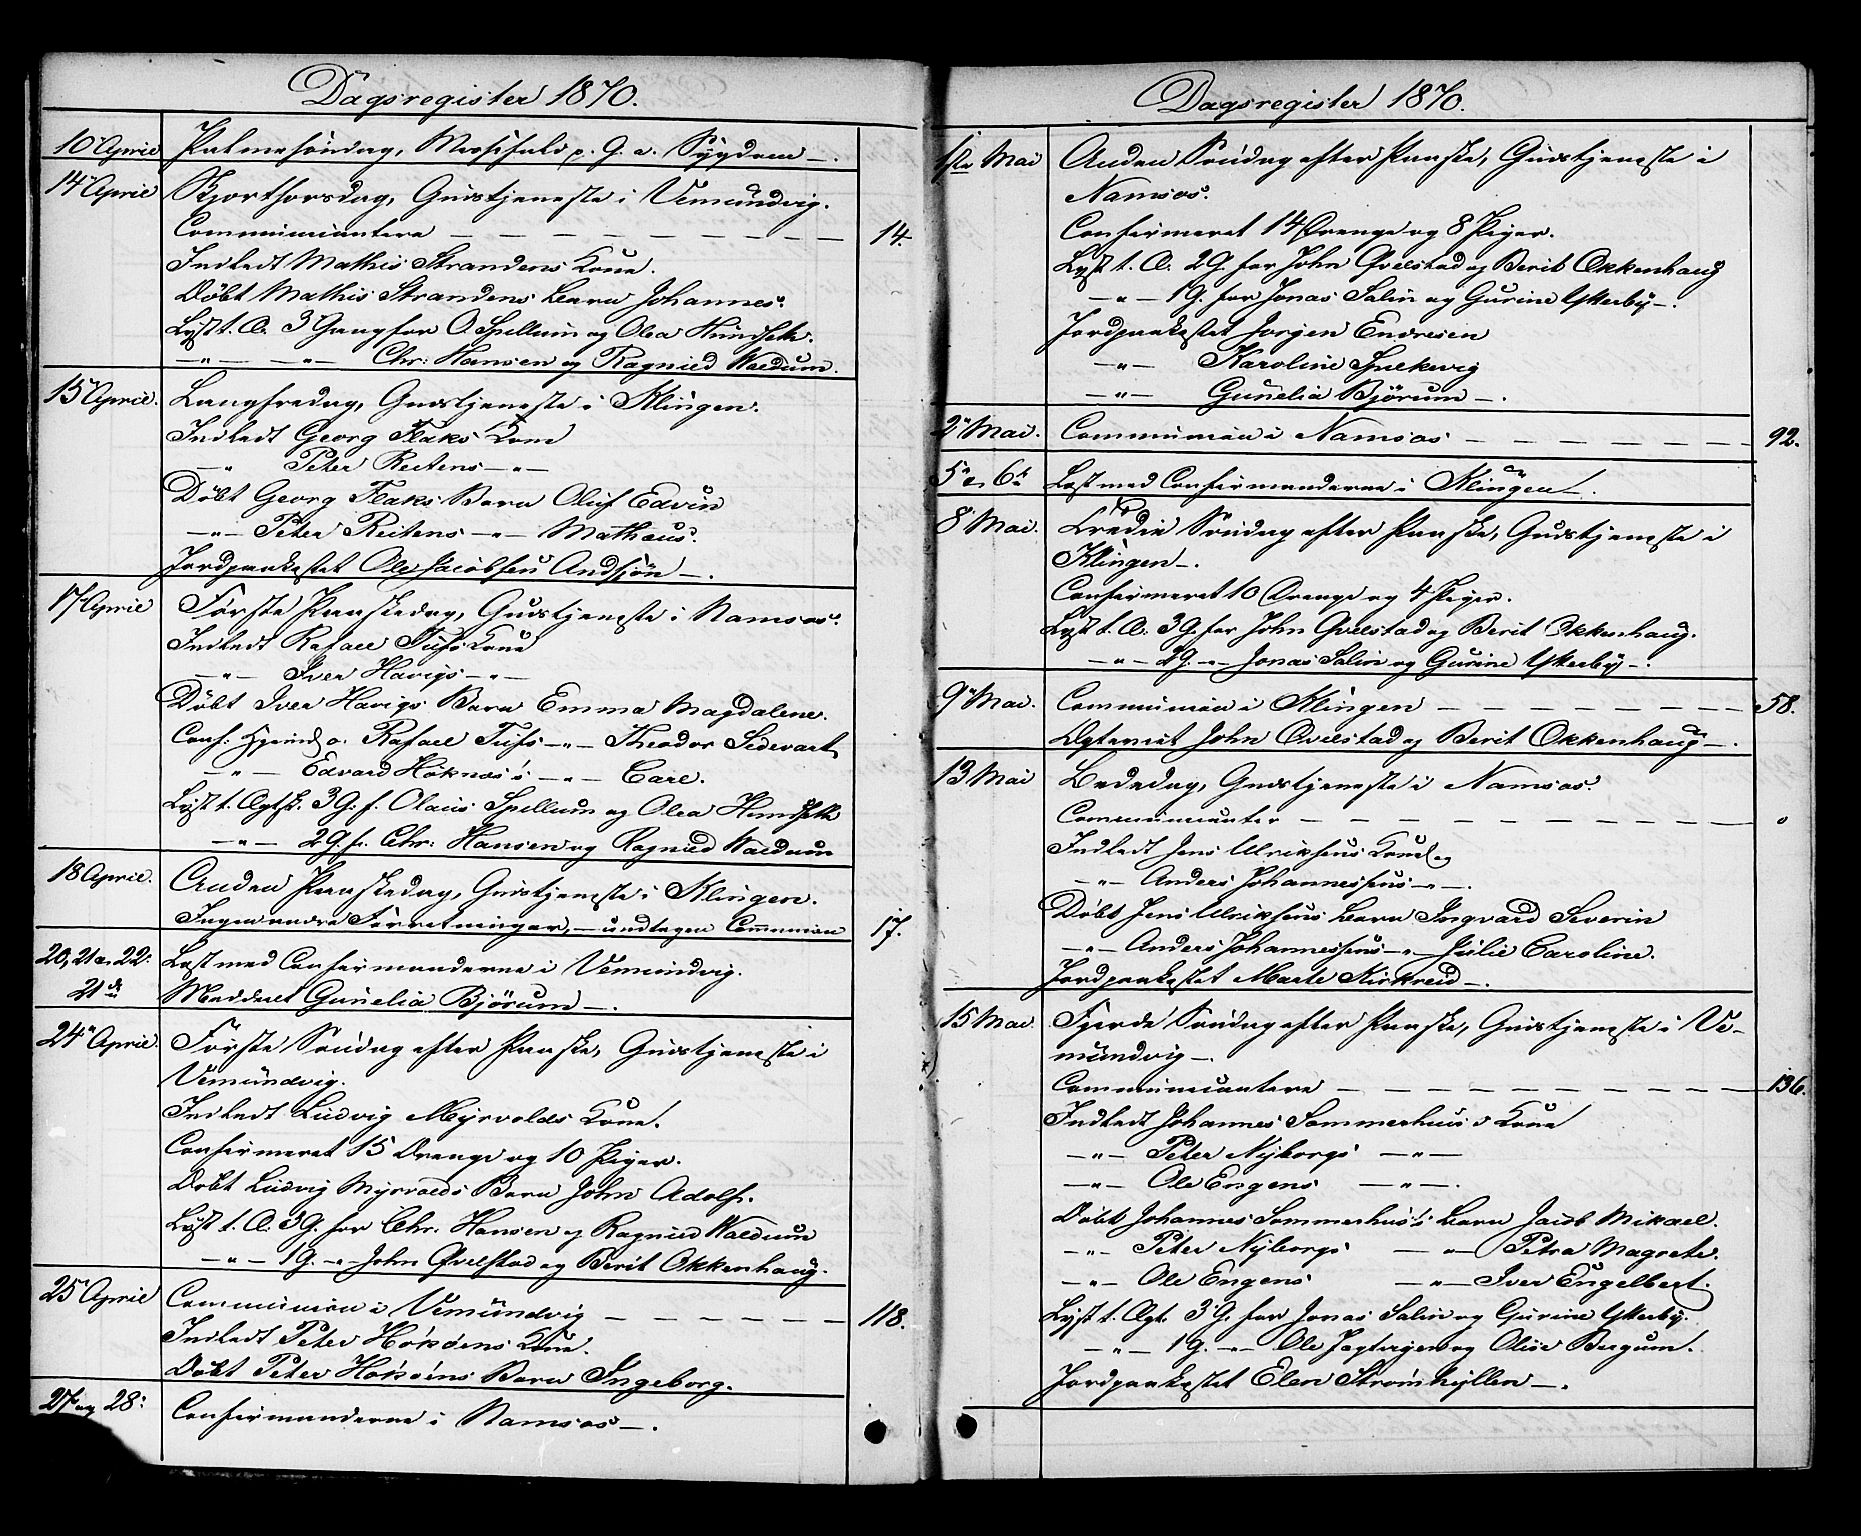 Dagsregister 1870.
10 April Palmesöndag, Messefald p. G. a. Sygdom —.
14 April Skjærthorsdag, Gudstjeneste i Vemundvig.
Communicantere — — — 14.
Indledt Mathis Strandens Kone.
Döbt Mathis Strandens Barn Johannes.
Lyst t. Æ. 3 Gang for O. Spillum og Olea Hundseth.
—"— —"— Chr: Hansen og Ragnild Waldum.
15 April. Langfredag, Gudstjeneste i Klingen.
Indledt Georg Flaks Kone
—"— Peter Reitens —"—
Döbt Georg Flaks Barn Oluf Edvin
—"— Peter Reitens —"— Mathæus.
Jordpaakastet Ole Jacobsen Andsjön —.
17 April Förste Paaskedag, Gudstjeneste i Namsos.
Indledt Rafael Fufs Kone
—"— Iver Havigs —"—
Döbt Iver Havigs Barn Emma Magdalene.
Conf. Hjemd. o. Rafael Fufs —"— Theodor Sedevart
—"— Edvard Höknæs's —"— Carl.
Lyst t. Ægtsk. 3 G: f. Olaus Spillum og Olea Hundseth
—"— 2 G. f. Chr: Hansen og Ragnild Waldum
18 April. Anden Paaskedag, Gudstjeneste i Klingen.
Ingen andre Forretninger, — undtagen Communion 17.
20, 21 og 22: Læst med Confirmanderne i Vemundvig.
21de Meddelt Gunelia Björum —.
24 April. Förste Söndag efter Paaske, Gudstjeneste i
Vemundvig.
Indledt Ludvig Myrvolds Kone.
Confirmeret 15 Drenge og 10 Piger.
Döbt Ludvig Myrvolds Barn John Adolf.
Lyst t. Æ. 3 G. for Chr. Hansen og Ragnild Waldum
—"— 1 G. —"— John Qvelstad og Berit Okkenhaug.
25 April Communion i Vemundvig — — — 118.
Indledt Peter Hököens Kone.
Döbt Peter Hököens Barn Ingeborg.
27 og 28: Confirmanderne i Namsos —.
Dagsregister 1870.
1ste Mai Anden Söndag efter Paaske, Gudstjeneste i
Namsos.
Confirmeret 14 Drenge og 8 Piger.
Lyst t. Æ. 2 G. for John Qvelstad og Berit Okkenhaug
—"— 1 G. for Jonas Salin og Gurine Ytterby —.
Jordpaakastet Jørgen Endresen
—"— Karoline Spilkevig
—"— Gunelia Björum —.
2 Mai. Communion i Namsos — — — 92.
5 og 6te Læst med Confirmanderne i Klingen —.
8 Mai. Tredie Söndag efter Paaske, Gudstjeneste i
Klingen —.
Confirmeret 10 Drenge og 4 Piger.
Lyst t. Æ: 3 G. for John Qvelstad og Berit Okkenhaug.
—"— 2 G. —"— Jonas Salin og Gurine Ytterby —.
9 Mai. Communion i Klingen — — — 58.
Ægteviet John Qvelstad og Berit Okkenhaug —.
13 Mai Bededag, Gudstjeneste i Namsos.
Communicanter — — — 0
Indledt Jens Ulriksens Kone og
—"— Anders Johannessens —"—.
Döbt Jens Ulriksens Barn Ingvard Severin
—"— Anders Johannessens —"— Julie Caroline.
Jordpaakastet Marte Kirkreid —.
15 Mai. Fjerde Söndag efter Paaske, Gudstjeneste i Ve-
mundvig —.
Communicantere — — — 136.
Indledt Johannes Sommerhus's Kone
—"— Peter Nyborgs —"—
—"— Ole Engens —"—.
Döbt Johannes Sommerhus's Barn Jacob Mikael.
—"— Peter Nyborgs —"— Petra Magrete.
—"— Ole Engens —"— Iver Engelbert.
Lyst t. Ægt. 3 G. for Jonas Salin og Gurine Ytterby.
—"— 1 G. —"— Ole Jegtvigen og Olise Bergum.
Jordpaakastet Elen Strömhyllen —.